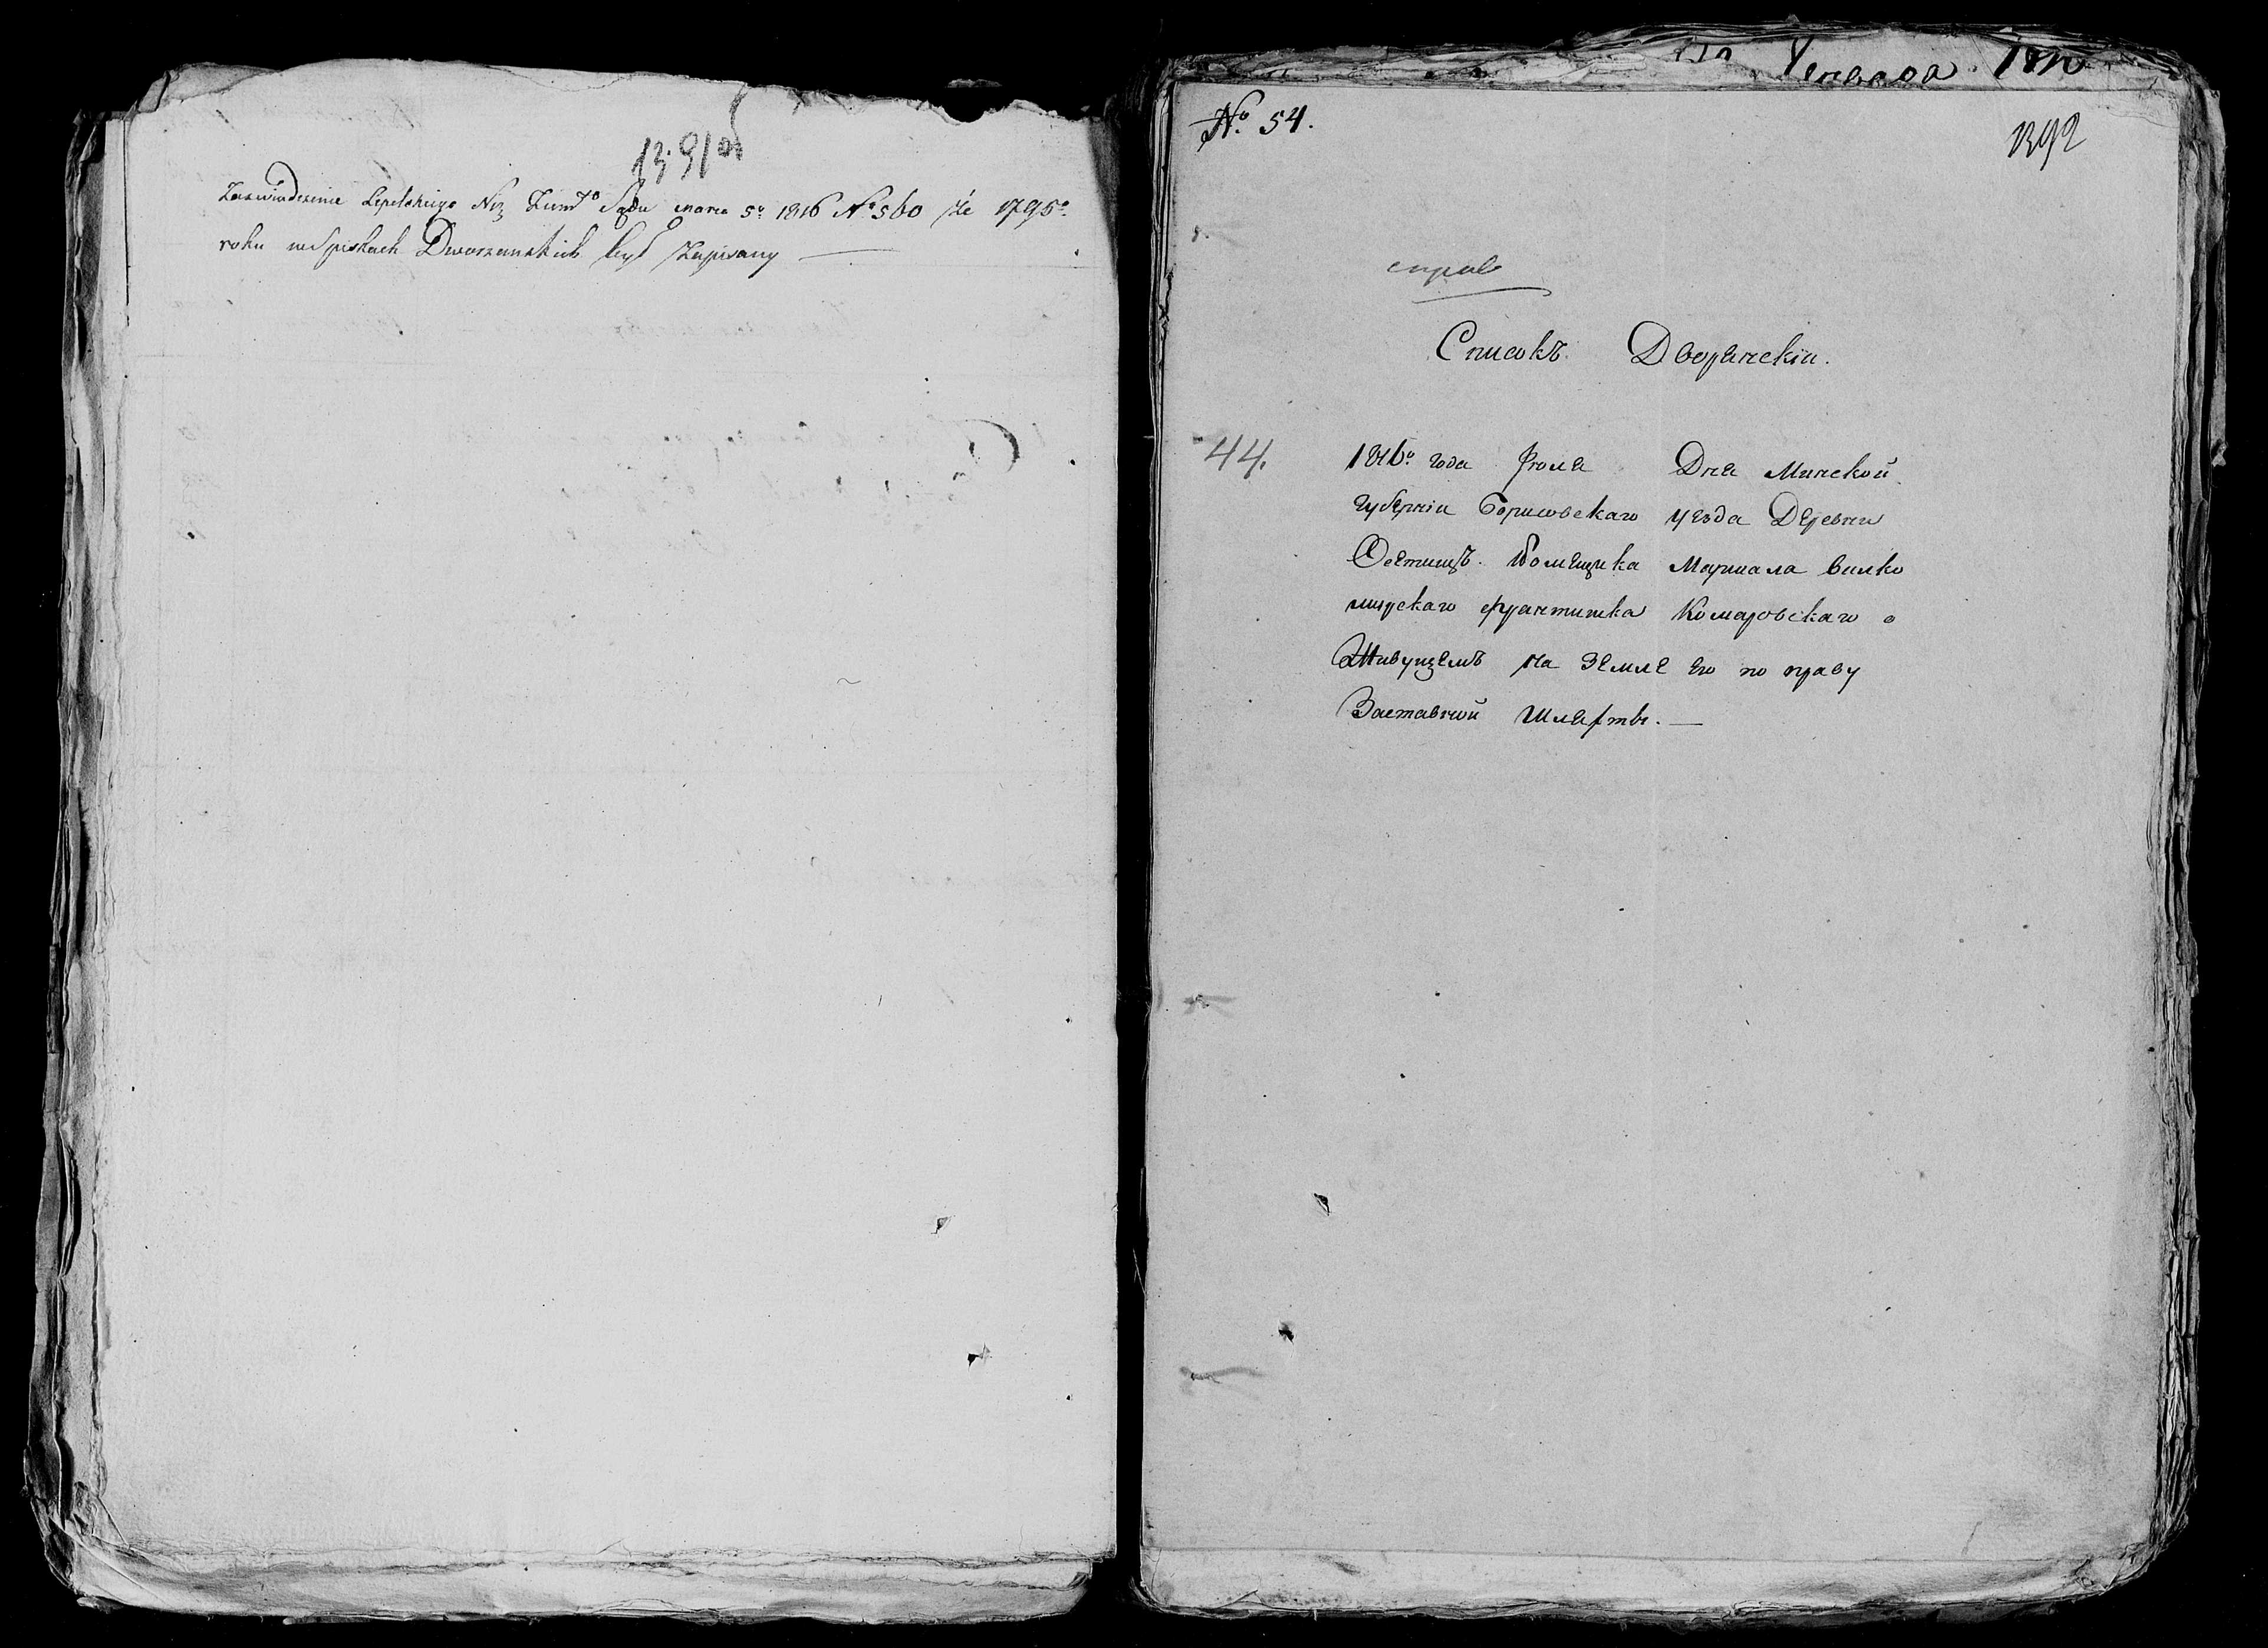 1391 об
Zaswiadczenie Lepelskiego Niz Ziem°. Sądu marca 5°. 1816 N° 560 że 1795°.
roku w Spiskach Dworzanskich był Zapisany —
№. 54.
1392
Списокъ Дворянскiи.
44.
1816°. года Iюля Дня Минской
губернiи Борисовскаго уезда Деревни
помещика Маршала вилко
мирскаго франтишка Комаровскаго о
Живущемъ на Земле его по праву
Заставной Шляхты. —